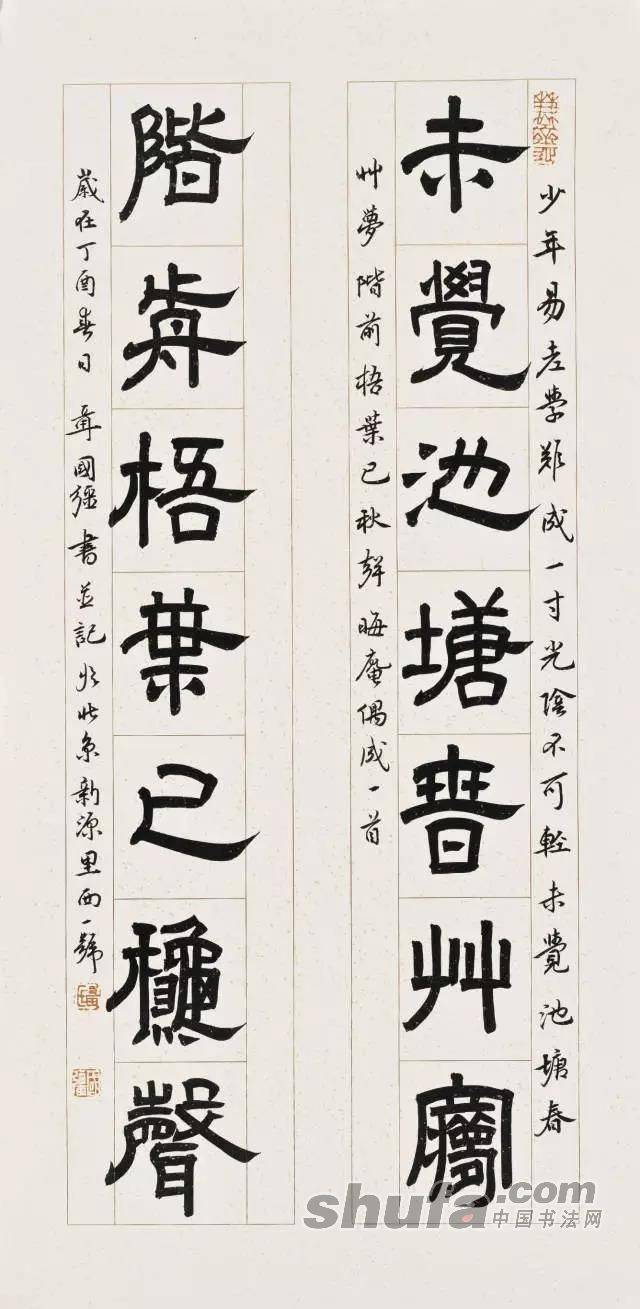 少年易老學難成一寸光陰不可輕未覺池塘春
未覺池塘春艸夢
艸夢階前梧葉已秋聲晦庵偶成一首
階歬梧葉已龝聲
歲在丁酉春日聶國彊書並記於北京新源里西一號
shufa.com
中国书法网